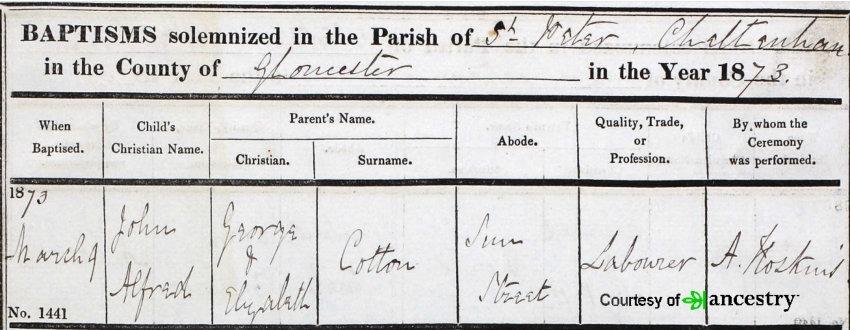 BAPTISMS solemnized in the Parish of St. Peter, Cheltenham
in the County of Gloucester in the Year 1873.
When Baptised.
Child's Christian Name.
Parent's Name.
Christian.
Surname.
Abode.
Quality, Trade, or Profession.
By whom the Ceremony was performed.
1873
March 9
No. 1441
John
Alfred
George
&
Elizabeth
Cotton
Sun
Street
Labourer
A. Hoskins
Courtesy of ancestry